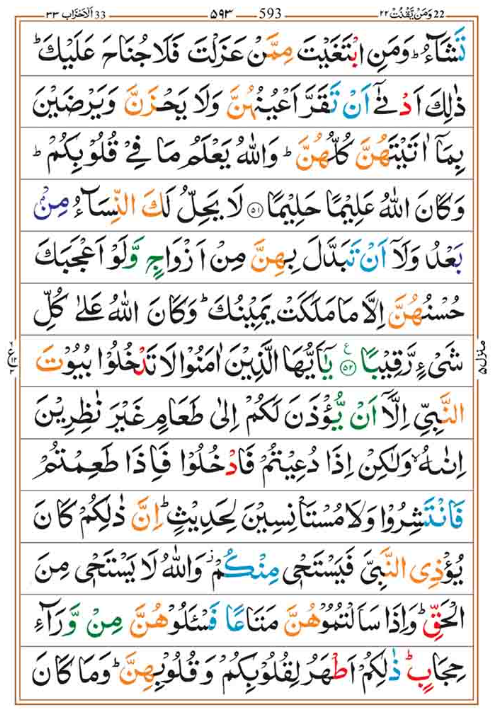 22 وَمَنْ يَّقْنُتْ ٢٢ 593 ٥٩٣ 33 اَلْاَحْزَاب ٣٣
تَشَآءُ ؕ وَمَنِ ابْتَغَيْتَ مِمَّنْ عَزَلْتَ فَلَا جُنَاحَ عَلَيْكَ ؕ
ذٰلِكَ اَدْنٰۤى اَنْ تَقَرَّ اَعْيُنُهُنَّ وَلَا يَحْزَنَّ وَيَرْضَيْنَ
بِمَاۤ اٰتَيْتَهُنَّ كُلُّهُنَّ ؕ وَاللّٰهُ يَعْلَمُ مَا فِىْ قُلُوْبِكُمْ ؕ
وَكَانَ اللّٰهُ عَلِيْمًا حَلِيْمًا ﴿۵۱﴾ لَا يَحِلُّ لَكَ النِّسَآءُ مِنْۢ
بَعْدُ وَلَاۤ اَنْ تَبَدَّلَ بِهِنَّ مِنْ اَزْوَاجٍ وَّلَوْ اَعْجَبَكَ
حُسْنُهُنَّ اِلَّا مَا مَلَكَتْ يَمِيْنُكَ ؕ وَكَانَ اللّٰهُ عَلٰى كُلِّ
شَىْءٍ رَّقِيْبًا ﴿۵۲﴾ ع يٰۤاَيُّهَا الَّذِيْنَ اٰمَنُوْا لَا تَدْخُلُوْا بُيُوْتَ
النَّبِىِّ اِلَّاۤ اَنْ يُّؤْذَنَ لَكُمْ اِلٰى طَعَامٍ غَيْرَ نٰظِرِيْنَ
اِنٰٮهُ ۙ وَلٰكِنْ اِذَا دُعِيْتُمْ فَادْخُلُوْا فَاِذَا طَعِمْتُمْ
فَانْتَشِرُوْا وَلَا مُسْتَاْنِسِيْنَ لِحَدِيْثٍ ؕ اِنَّ ذٰلِكُمْ كَانَ
يُؤْذِى النَّبِىَّ فَيَسْتَحْىٖ مِنْكُمْ ۫ وَاللّٰهُ لَا يَسْتَحْىٖ مِنَ
الْحَقِّ ؕ وَاِذَا سَاَلْتُمُوْهُنَّ مَتَاعًا فَسْئَلُوْهُنَّ مِنْ وَّرَآءِ
حِجَابٍ ؕ ذٰلِكُمْ اَطْهَرُ لِقُلُوْبِكُمْ وَقُلُوْبِهِنَّ ؕ وَمَا كَانَ
منزل ۵